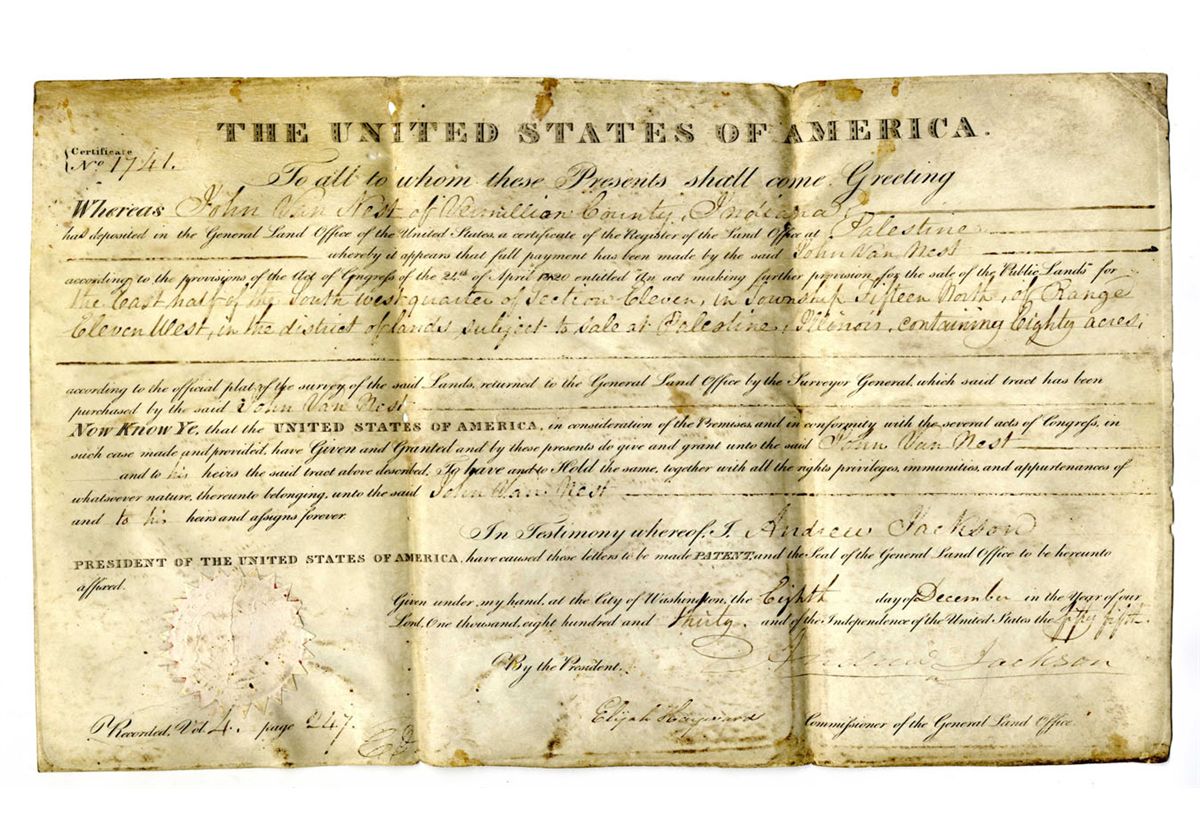 THE UNITED STATES OF AMERICA.
Certificate
No. 1741.
To all to whom these Presents shall come Greeting
Whereas John Van Nest of Vermillian County, Indiana,
has deposited in the General Land Office of the United States, a certificate of the Register of the Land Office at Palestine
whereby it appears that full payment has been made by the said John Van Nest
according to the provisions of the Act of Congress of the 24th of April 1820 entitled An act making further provision for the sale of the Public Lands for
the East half of the South west quarter of Section Eleven, in Township Fifteen North, of Range
Eleven West, in the district of lands subject to sale at Palestine, Illinois, containing Eighty acres,
according to the official plat of the survey of the said Lands, returned to the General Land Office by the Surveyor General, which said tract has been
purchased by the said John Van Nest
Now Know Ye, that the UNITED STATES OF AMERICA, in consideration of the Premises, and in conformity with the several acts of Congress, in
such case made and provided, have Given and Granted and by these presents do give and grant unto the said John Van Nest
and to his heirs the said tract above described, To have and to Hold the same, together with all the rights privileges, immunities, and appurtenances of
whatsoever nature, thereunto belonging, unto the said John Van Nest
and to his heirs and assigns forever.
In Testimony whereof, I, Andrew Jackson
PRESIDENT OF THE UNITED STATES OF AMERICA, have caused these letters to be made PATENT, and the Seal of the General Land Office to be hereunto
affixed.
Given under my hand, at the City of Washington, the Eighth day of December in the Year of our
Lord, One thousand, eight hundred and thirty and of the Independence of the United States the fifty fifth.
By the President. Andrew Jackson
Recorded, Vol 4. page 247
Elijah Hayward Commissioner of the General Land Office